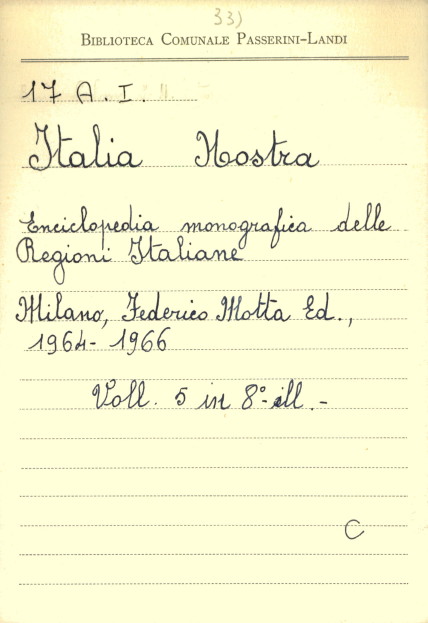 33)
BIBLIOTECA COMUNALE PASSERINI-LANDI
17 A. I.
Italia Nostra
Enciclopedia monografica delle
Regioni Italiane
Milano, Federico Motta Ed.,
1964- 1966
Voll. 5 in 8° ill. -
C